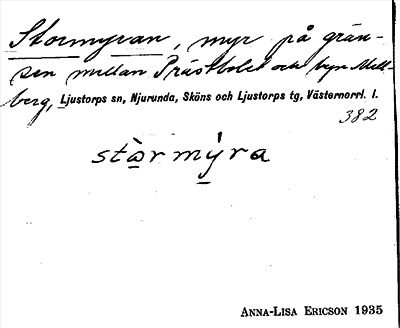 Stormyran, myr på grän-
sen mellan Prästbolet och byn Mell-
berg, Ljustorps sn, Njurunda, Sköns och Ljustorps tg, Västernorrl. l.
382
stòrmý̱ra
ANNA-LISA ERICSON 1935